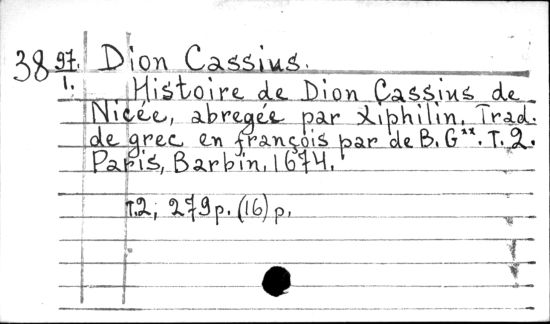 38 97. Dion Cassius.
1. Histoire de Dion Cassius de
Nicée, abregée par Xiphilin. Trad.
de grec en françois par de B. G**. T. 2.
Paris, Barbin, 1674.
T.2; 279 p. (16) p.